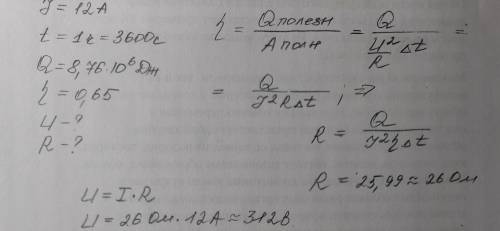 J = 12 А
t = 1 ч = 3600с
Q = 8,76·10⁶ Дж
η = 0,65
U - ?
R - ?
η = Qполезн / Aполн = Q / (U²/R Δt) =
= Q / (J²RΔt) ; ⇒
R = Q / (J²ηΔt)
R = 25,99 ≈ 26 Ом
U = I · R
U = 26 Ом · 12 А ≈ 312 В